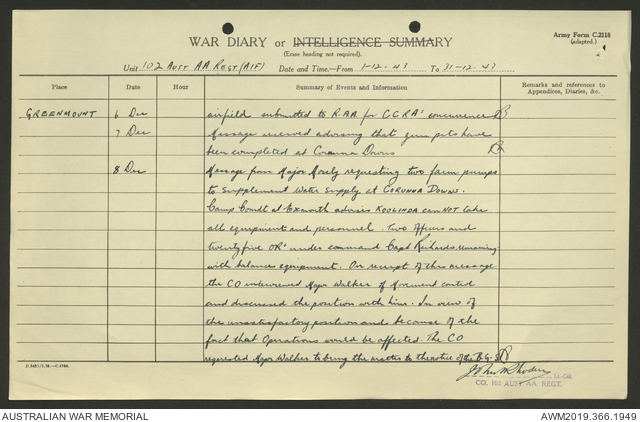 Army Form C.2118
(adapted.)
WAR DIARY or INTELLIGENCE SUMMARY
(Erase heading not required).
Unit 102 AUST AA. REGT (AIF) Date and Time—From 1-12-43 To 31-12-43
Place Date Hour Summary of Events and Information Remarks and references to Appendices, Diaries, &c.
GREENMOUNT 6 Dec airfield submitted to RAA for CCRA's concurrence
7 Dec Message received advising that gun pits have
been completed at Corunna Downs
8 Dec Message from Major Mosely requesting two farm pumps
to supplement water supply at CORUNNA DOWNS.
Camp Comdt at Exmouth advises KOOLINDA can NOT take
all equipment and personnel. Two officers and
twenty five OR's under command Capt Richards remaining
with balance equipment. On receipt of this message
the CO interviewed Major Walker of Movement control
and discussed the position with him. In view of
the unsatisfactory position and because of the
fact that Operations would be affected. The CO
requested Major Walker to bring the matter to the notice of the B.G.S.
Lt.-Col.
CO. 102 AUST AA. REGT.
AUSTRALIAN WAR MEMORIAL
AWM2019.366.1949